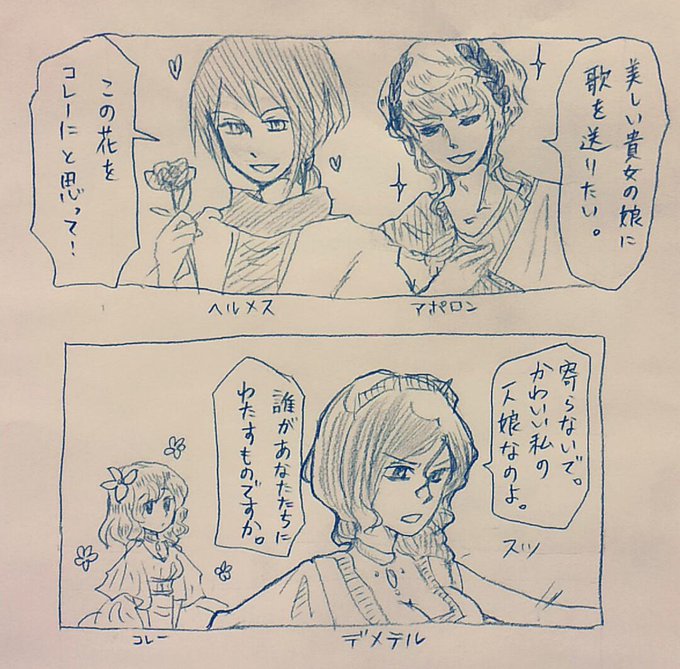 美しい貴女の娘に
歌を送りたい。
この花を
コレーにと思って!
ヘルメス
アポロン
寄らないで。
かわいい私の
一人娘なのよ。
スッ
誰があなたたちに
わたすものですか。
コレー
デメテル